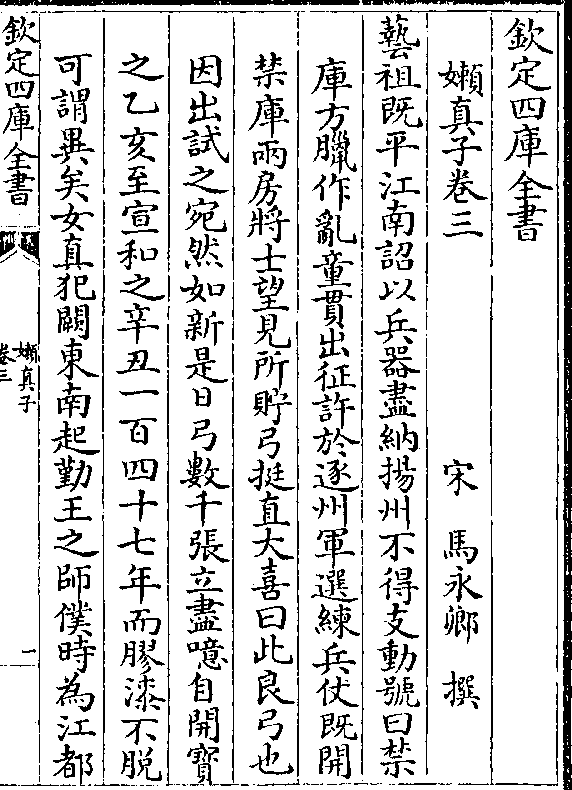 欽定四庫全書
嬾真子卷三
宋 馬永卿 撰
藝祖既平江南詔以兵器盡納揚州不得支動號曰禁
庫方臘作亂童貫出征許於逐州軍選練兵仗既開
禁庫兩房將士望見所貯弓挺直大喜曰此良弓也
因出試之宛然如新是日弓數千張立盡噫自開寳
之乙亥至宣和之辛丑一百四十七年而膠漆不脱
可謂異矣女真犯闕東南起勤王之師僕時為江都
欽定四庫全書
嬾真子
卷三
一